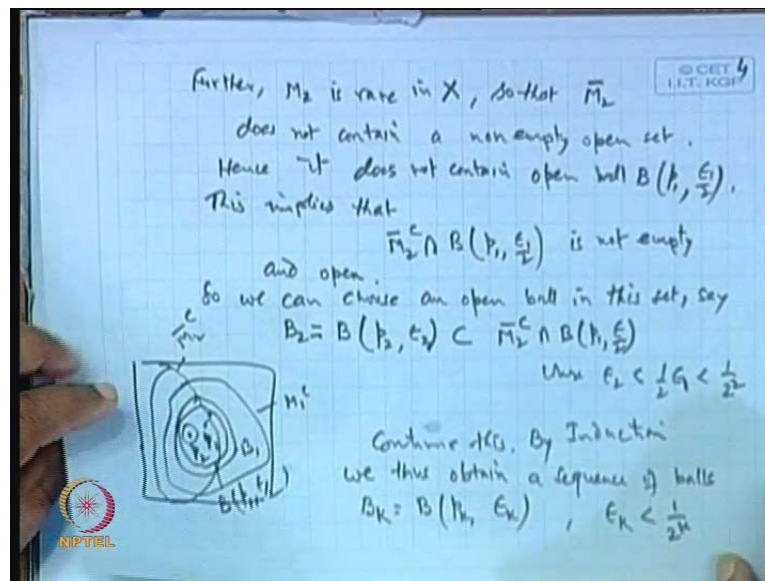 © CET
I.I.T. KGP
4
Further, M₂ is rare in X, so that M̄₂
does not contain a nonempty open set.
Hence it does not contain open ball B(p₁, ε₁/2).
This implies that
M̄₂ᶜ ∩ B(p₁, ε₁/2) is not empty
and open.
So we can choose an open ball in this set, say
B₂ = B(p₂, ε₂) ⊂ M̄₂ᶜ ∩ B(p₁, ε₁/2)
ε₂ < 1/2 ε₁ < 1/2²
M₁ᶜ
B₁
p₂
Continue this. By Induction
we thus obtain a sequence of balls
Bₖ = B(pₖ, εₖ), εₖ < 1/2ᵏ
NPTEL